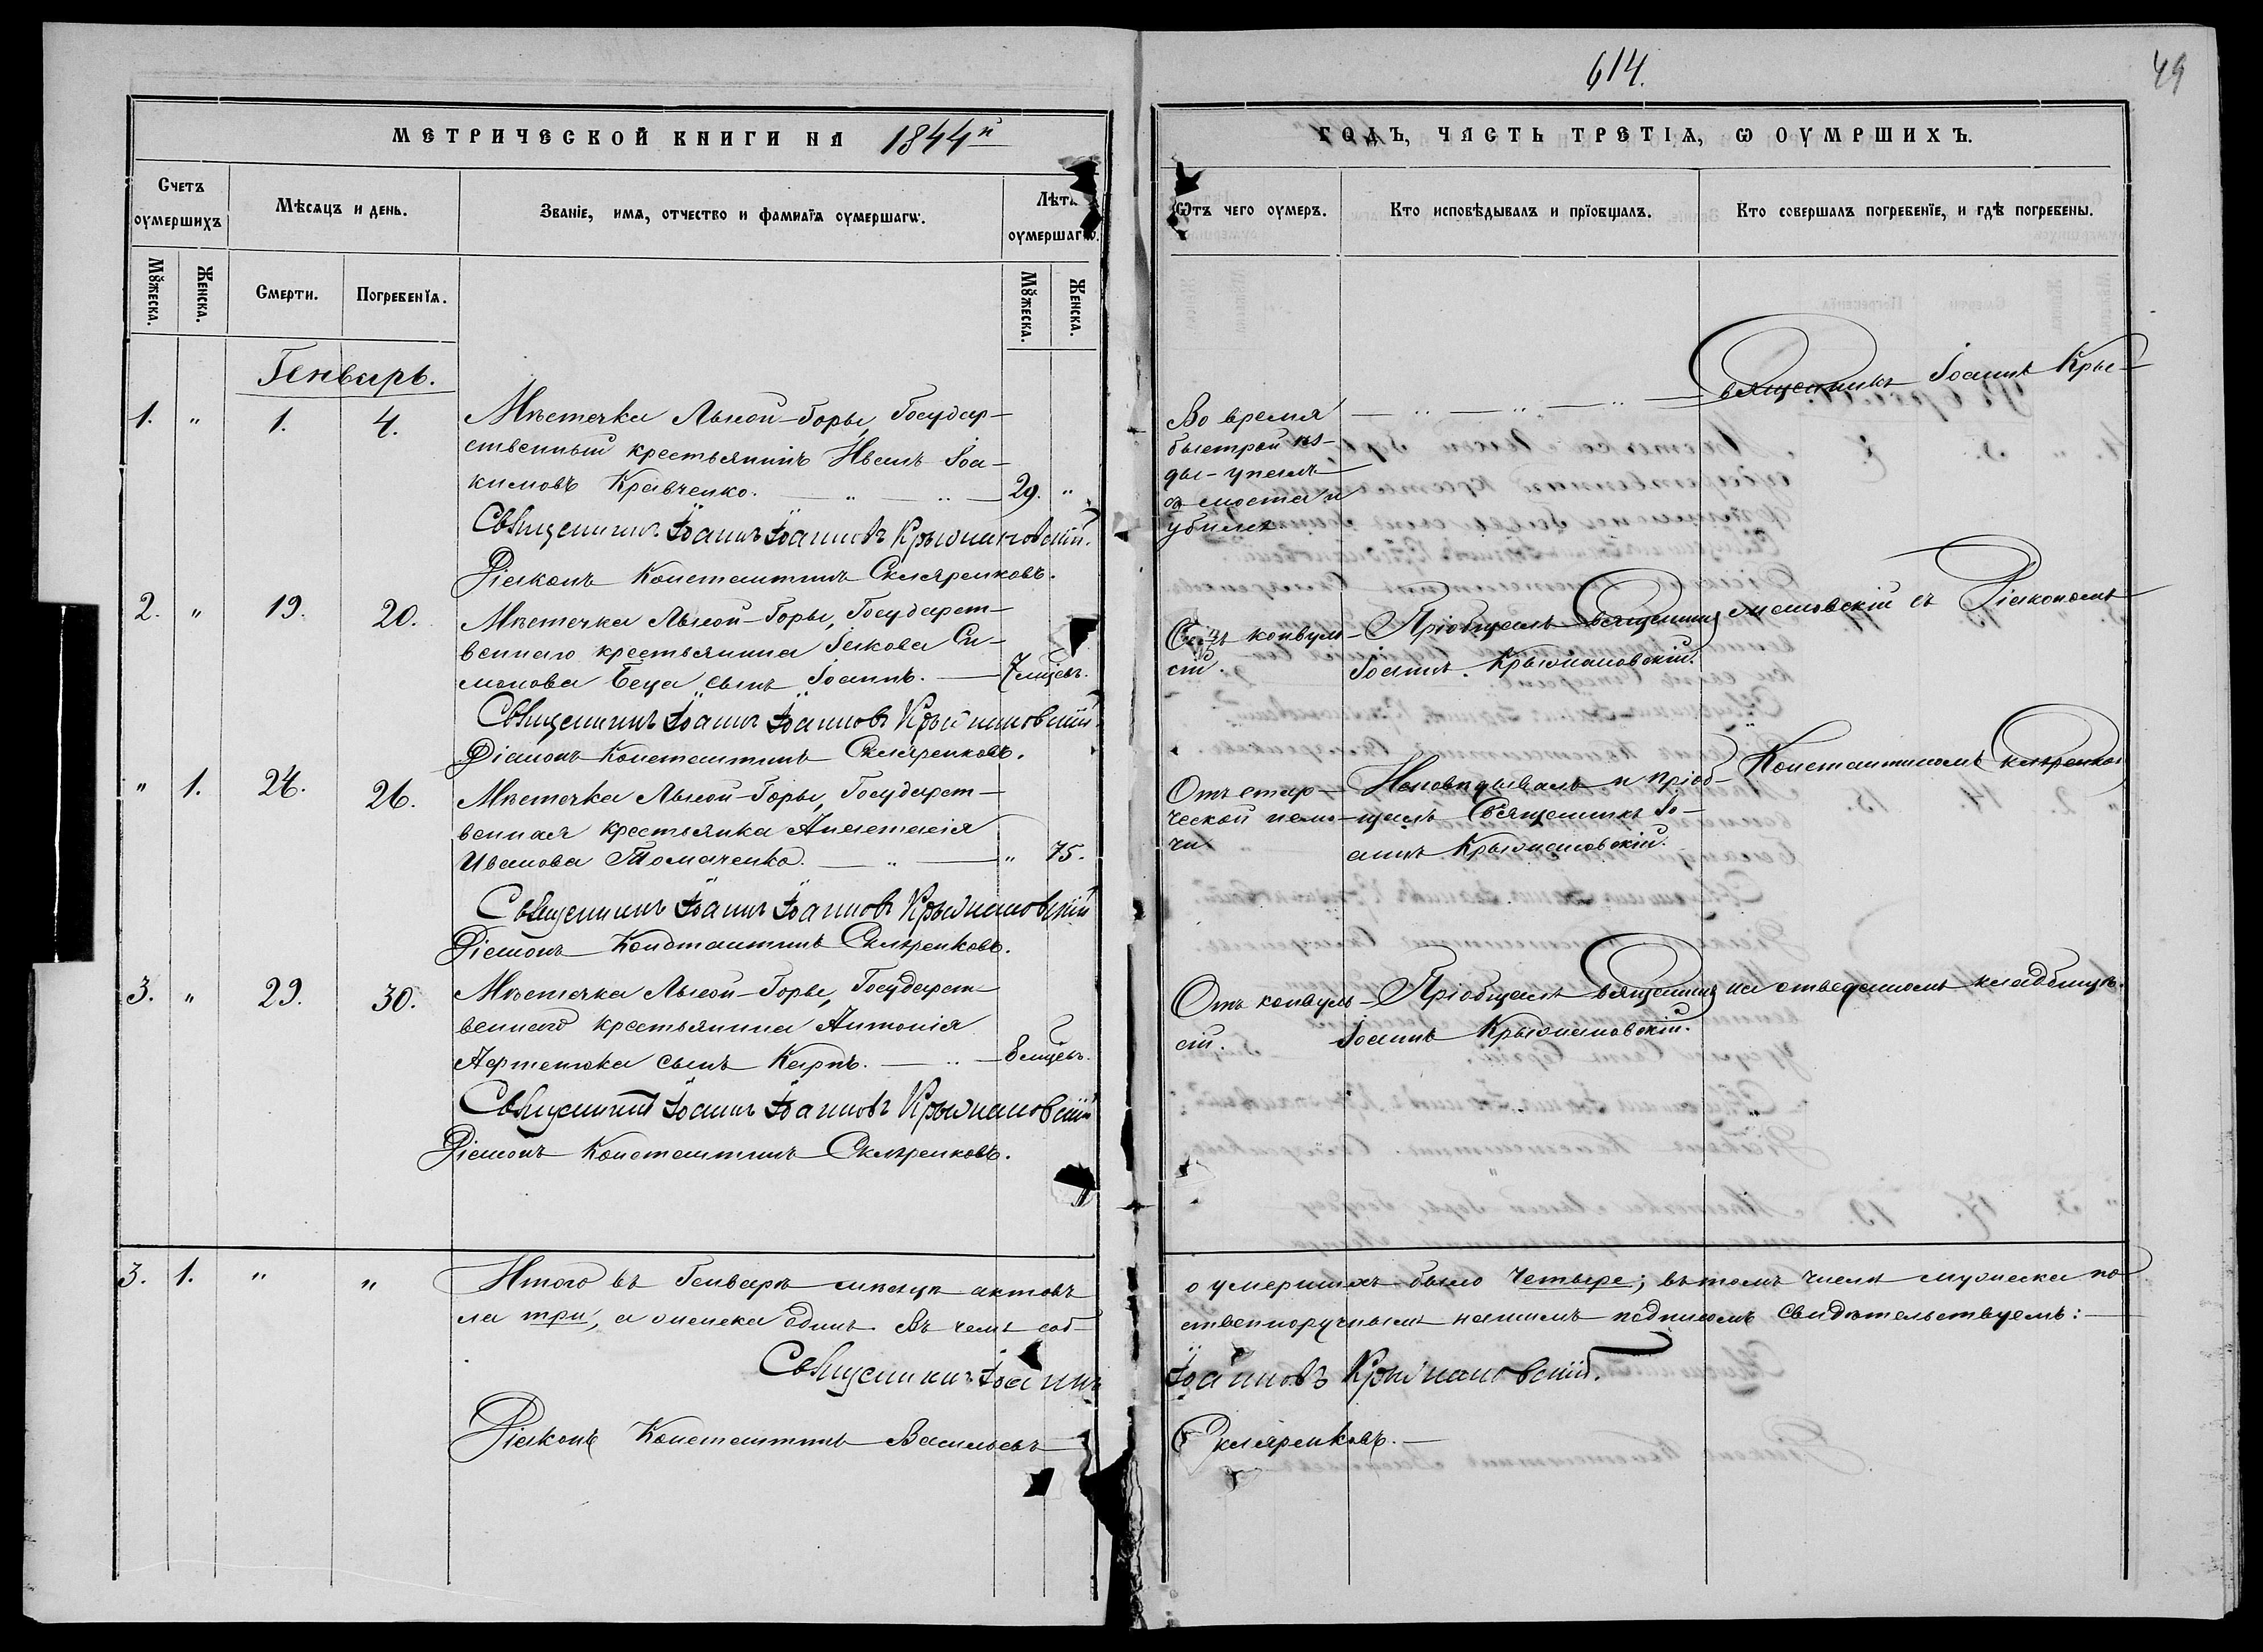 614.
49
МЕТРИЧЕСКОЙ КНИГИ НА 1844й
ГОДЪ, ЧАСТЬ ТРЕТІѦ, Ѡ ОУМРШИХЪ.
Счетъ оумершихъ
Мѣсѧцъ и день.
Званіе, имѧ, отчество и фамиліѧ оумершагѡ.
Лѣта оумершагѡ.
Ѿтъ чего оумеръ.
Кто исповѣдывалъ и прїобщалъ.
Кто совершалъ погребенїе, и гдѣ погребены.
Мꙋжеска.
Женска.
Смерти.
Погребенїѧ.
Мꙋжеска.
Женска.
Генварь.
1. " 1. 4. Мѣстечка Лысой-Горы, Государ-
ственный крестьянинъ Иванъ Іоа-
кимовъ Кравченко. 29. "
Священникъ Іоаннъ Іоанновъ Крыжановскій.
Діаконъ Константинъ Скляренковъ.
Во время
быстрой ѣз-
ды-упалъ
съ моста и
убился
Священникъ Іоаннъ Кры-
2. " 19. 20. Мѣстечка Лысой-Горы, Государст-
веннаго крестьянина Іакова Си-
монова Беца сынъ Іоаннъ. 7 мѣсцевъ.
Священникъ Іоаннъ Іоанновъ Крыжановскій
Діаконъ Константинъ Скляренковъ.
Отъ конвуль-
сій.
Пріобщалъ Священникъ
Іоаннъ Крыжановскій.
жановскій съ Діакономъ
" 1. 24. 26. Мѣстечка Лысой-Горы, Государст-
венная крестьянка Анастасія
Иванова Томаченко. " 75.
Священникъ Іоаннъ Іоанновъ Крыжановскій
Діаконъ Константинъ Скляренковъ.
Отъ стар-
ческой немо-
чи
Исповѣдывалъ и пріоб-
щалъ Священникъ Іо-
аннъ Крыжановскій.
Константиномъ Скляренков
3. " 29. 30. Мѣстечка Лысой-Горы, Государст-
веннаго крестьянина Антонія
сынъ Карпъ. 8 мѣсцевъ.
Священникъ Іоаннъ Іоанновъ Крыжановскій
Діаконъ Константинъ Скляренковъ.
Отъ конвуль-
сій.
Пріобщалъ Священникъ
Іоаннъ Крыжановскій.
на отведенномъ кладбищѣ.
3. 1. " " Итого въ Генварѣ мѣсяцѣ актовъ о умершихъ было Четыре; въ томъ числѣ мужеска по-
ла три, а женска одинъ. Въ чемъ соб-ственноручнымъ нашимъ подписомъ свидѣтельствуемъ:
Священникъ Іоаннъ Іоанновъ Крыжановскій.
Діаконъ Константинъ Васильевъ Скляренковъ.